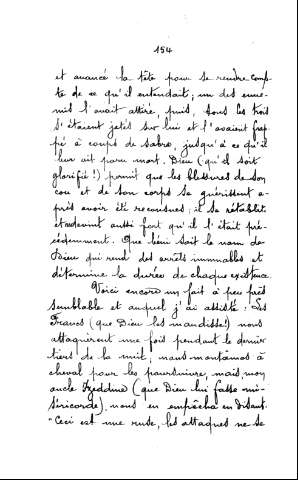 154
et avancé la tête pour se rendre comp-
te de ce qu'il entendait; un des enne-
mis l'avait attiré, puis, tous les trois
s'étaient jetés sur lui et l'avaient frap-
pé à coups de sabre, jusqu'à ce qu'il
leur ait paru mort. Dieu (qu'il soit
glorifié!) permit que les blessures de son
cou et de son corps se guérissent a-
près avoir été recousues; il se rétablit
et redevint aussi fort qu'il l'était pré-
cédemment. Que béni soit le nom de
Dieu qui rend des arrêts immuables et
détermine la durée de chaque existence.
Voici encore un fait à peu près
semblable et auquel j'ai assisté: Les
Francs (que Dieu les maudisse!) nous
attaquèrent une fois pendant le dernier
tiers de la nuit; nous montâmes à
cheval pour les poursuivre, mais mon
oncle Izeddine (que Dieu lui fasse mi-
séricorde), nous en empêcha en disant:
"Ceci est une ruse, les attaques ne se